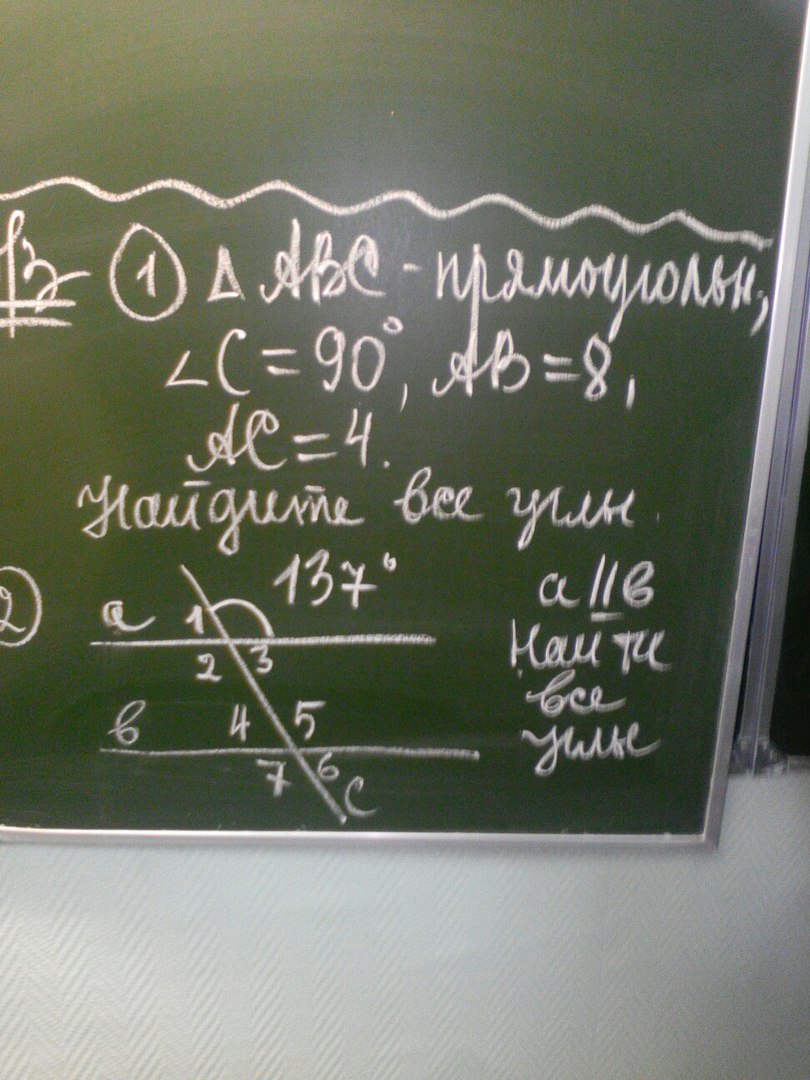 Дз ① Δ ABC - прямоугольн,
∠C = 90°, AB = 8,
AC = 4.
Найдите все углы.
② 137°
a 1
2 3
в 4 5
7 6
C
a || в
Найти
все
углы